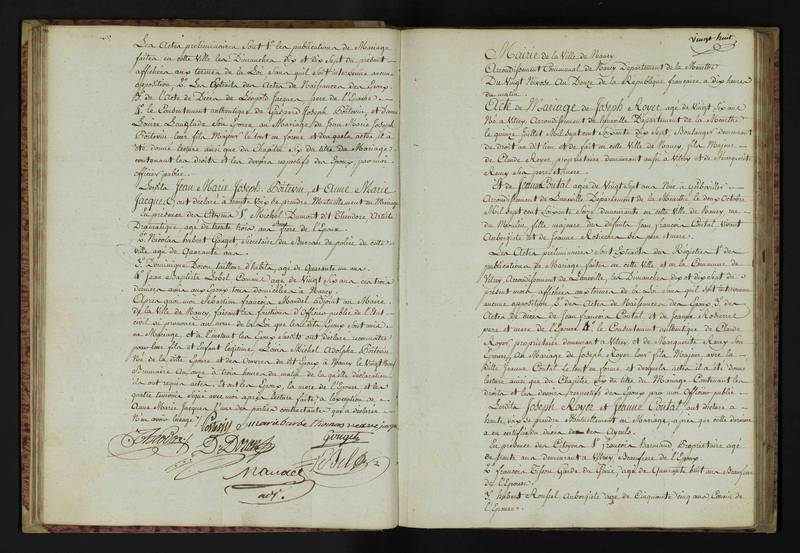 Les Actes préliminaires sont 1° les publications de Mariage
faites en cette ville les Dimanches dix et dix sept du présent
affichées aux termes de la Loi sans qu'il soit intervenu aucune
opposition 2° Les Extraits des Actes de Naissances des Epoux
3° de l'Acte de Décès de Léopold Jacques père de l'Epouse
4° le Consentement authentique de Joseph Poitevin, et dame
Louise son Epouse au Mariage de Jean Marie Joseph
Poitevin leur fils Majeur le tout en forme et desquels actes il a
été donné lecture ainsi que du Chapitre Six du titre du Mariage
contenant les droits et les devoirs respectifs des Epoux par moi
officier public.
Lesdits Jean Marie Joseph Poitevin, et Anne Marie
Jacques, ont déclaré à haute voix se prendre Mutuellement en Mariage
en présence des Citoyens 1° Michel Dumont dit Théodore Artiste
Dramatique âgé de trente trois ans
2° Nicolas hubert Gouget, Secrétaire du Bureau de police de cette
ville âgé de Quarante ans
3° Dominique Doron tailleur d'habits, âgé de Quarante un ans
4° Jean Baptiste Lebel Commis âgé de vingt Six ans ces trois
derniers amis aux Epoux tous domiciliés à Nancy.
Après quoi moi Sébastien françois Mandel adjoint au Maire
de la Ville de Nancy faisant les fonctions d'Officier public de l'Etat
civil ai prononcé au nom de la Loi que lesdits Epoux sont unis
en Mariage, et à l'instant les Epoux susdits ont déclaré reconnaître
pour leur fils et Enfant légitime, Louis Michel Adolphe Poitevin
Né de la dite Epouse et des Œuvres du dit Epoux à Nancy le Vingt
Brumaire An à trois heures du matin de laquelle déclaration
ils ont requis acte. Et ont les Epoux, la mère de l'Epouse et les
quatre témoins signé avec moi après lecture faite, à l'exception de
Anne Marie Jacques, l'une des parties contractantes qui a déclaré
N'en avoir l'usage.
Poitevin marie barbe thomas
Théodore D. Doron Gouget
Lebel
Mandel
adj.
Vingt huit
Mairie de la Ville de Nancy
Arrondissement Communal de Nancy Département de la Meurthe
Du Vingt Nivôse An Douze de la République française à dix heures
du matin.
Acte de Mariage de Joseph Royer âgé de Vingt six ans
Né à Vitrey, Arrondissement de Lunéville Département de la Meurthe
le quinze Juillet Mil sept cent Soixante dix Sept, Boulanger demeurant
de droit au dit lieu et de fait en cette Ville de Nancy, fils Majeur
de Claude Royer, propriétaire demeurant aussi à Vitrey et de Marguerite
Remy Ses père et mère.
Et de Jeanne Coutal âgée de Vingt Sept ans Née à Gerbéviller
Arrondissement de Lunéville Département de la Meurthe le deux Octobre
Mil Sept cent Soixante Seize demeurante en cette Ville de Nancy, rue
du Moulin, fille majeure des défunts Jean françois Coutal, Vivant
Aubergiste et de Jeanne Ses père et mère.
Les Actes préliminaires sont Extraits des Registres 1° des
publications de Mariage faites en cette Ville et en la Commune de
Vitrey, Arrondissement de Lunéville les Dimanches dix et dix Sept du
présent mois affichées aux termes de la Loi sans qu'il soit intervenu
aucune opposition 2° des Actes de Naissances des Epoux 3° des
Actes de décès de Jean françois Coutal, et de Jeanne
père et mère de l'Epouse 4° le Consentement authentique de Claude
Royer, propriétaire demeurant à Vitrey et de Marguerite Remy Son
Epouse, au Mariage de Joseph Royer leur fils Majeur, avec la
dite Jeanne Coutal. Le tout en forme et desquels actes il a été donné
lecture ainsi que du Chapitre Six du titre du Mariage Contenant les
droits et les devoirs respectifs des Epoux par moi Officier public
Lesdits Joseph Royer et Jeanne Coutal ont déclaré à
haute voix se prendre Mutuellement en Mariage,
a été certifié du décès de ses Ayeuls.
En présence des Citoyens 1° françois Propriétaire âgé
de trente ans demeurant à Vitrey, Beaufrère de l'Epoux
2° françois Garde du Génie, âgé de Quarante huit ans Beaufrère
de l'Epouse.
3° hubert Roussel, Aubergiste, âgé de Cinquante Cinq ans, Cousin de
l'Epouse.